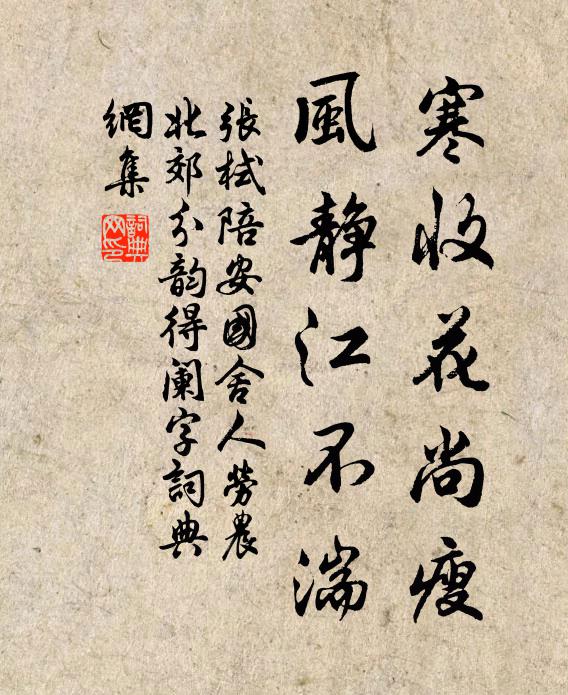 寒收花尚瘦
風静江不湍
張栻陪安國舍人勞農
北郊分韵得阑字詞典
網集
詞典網印